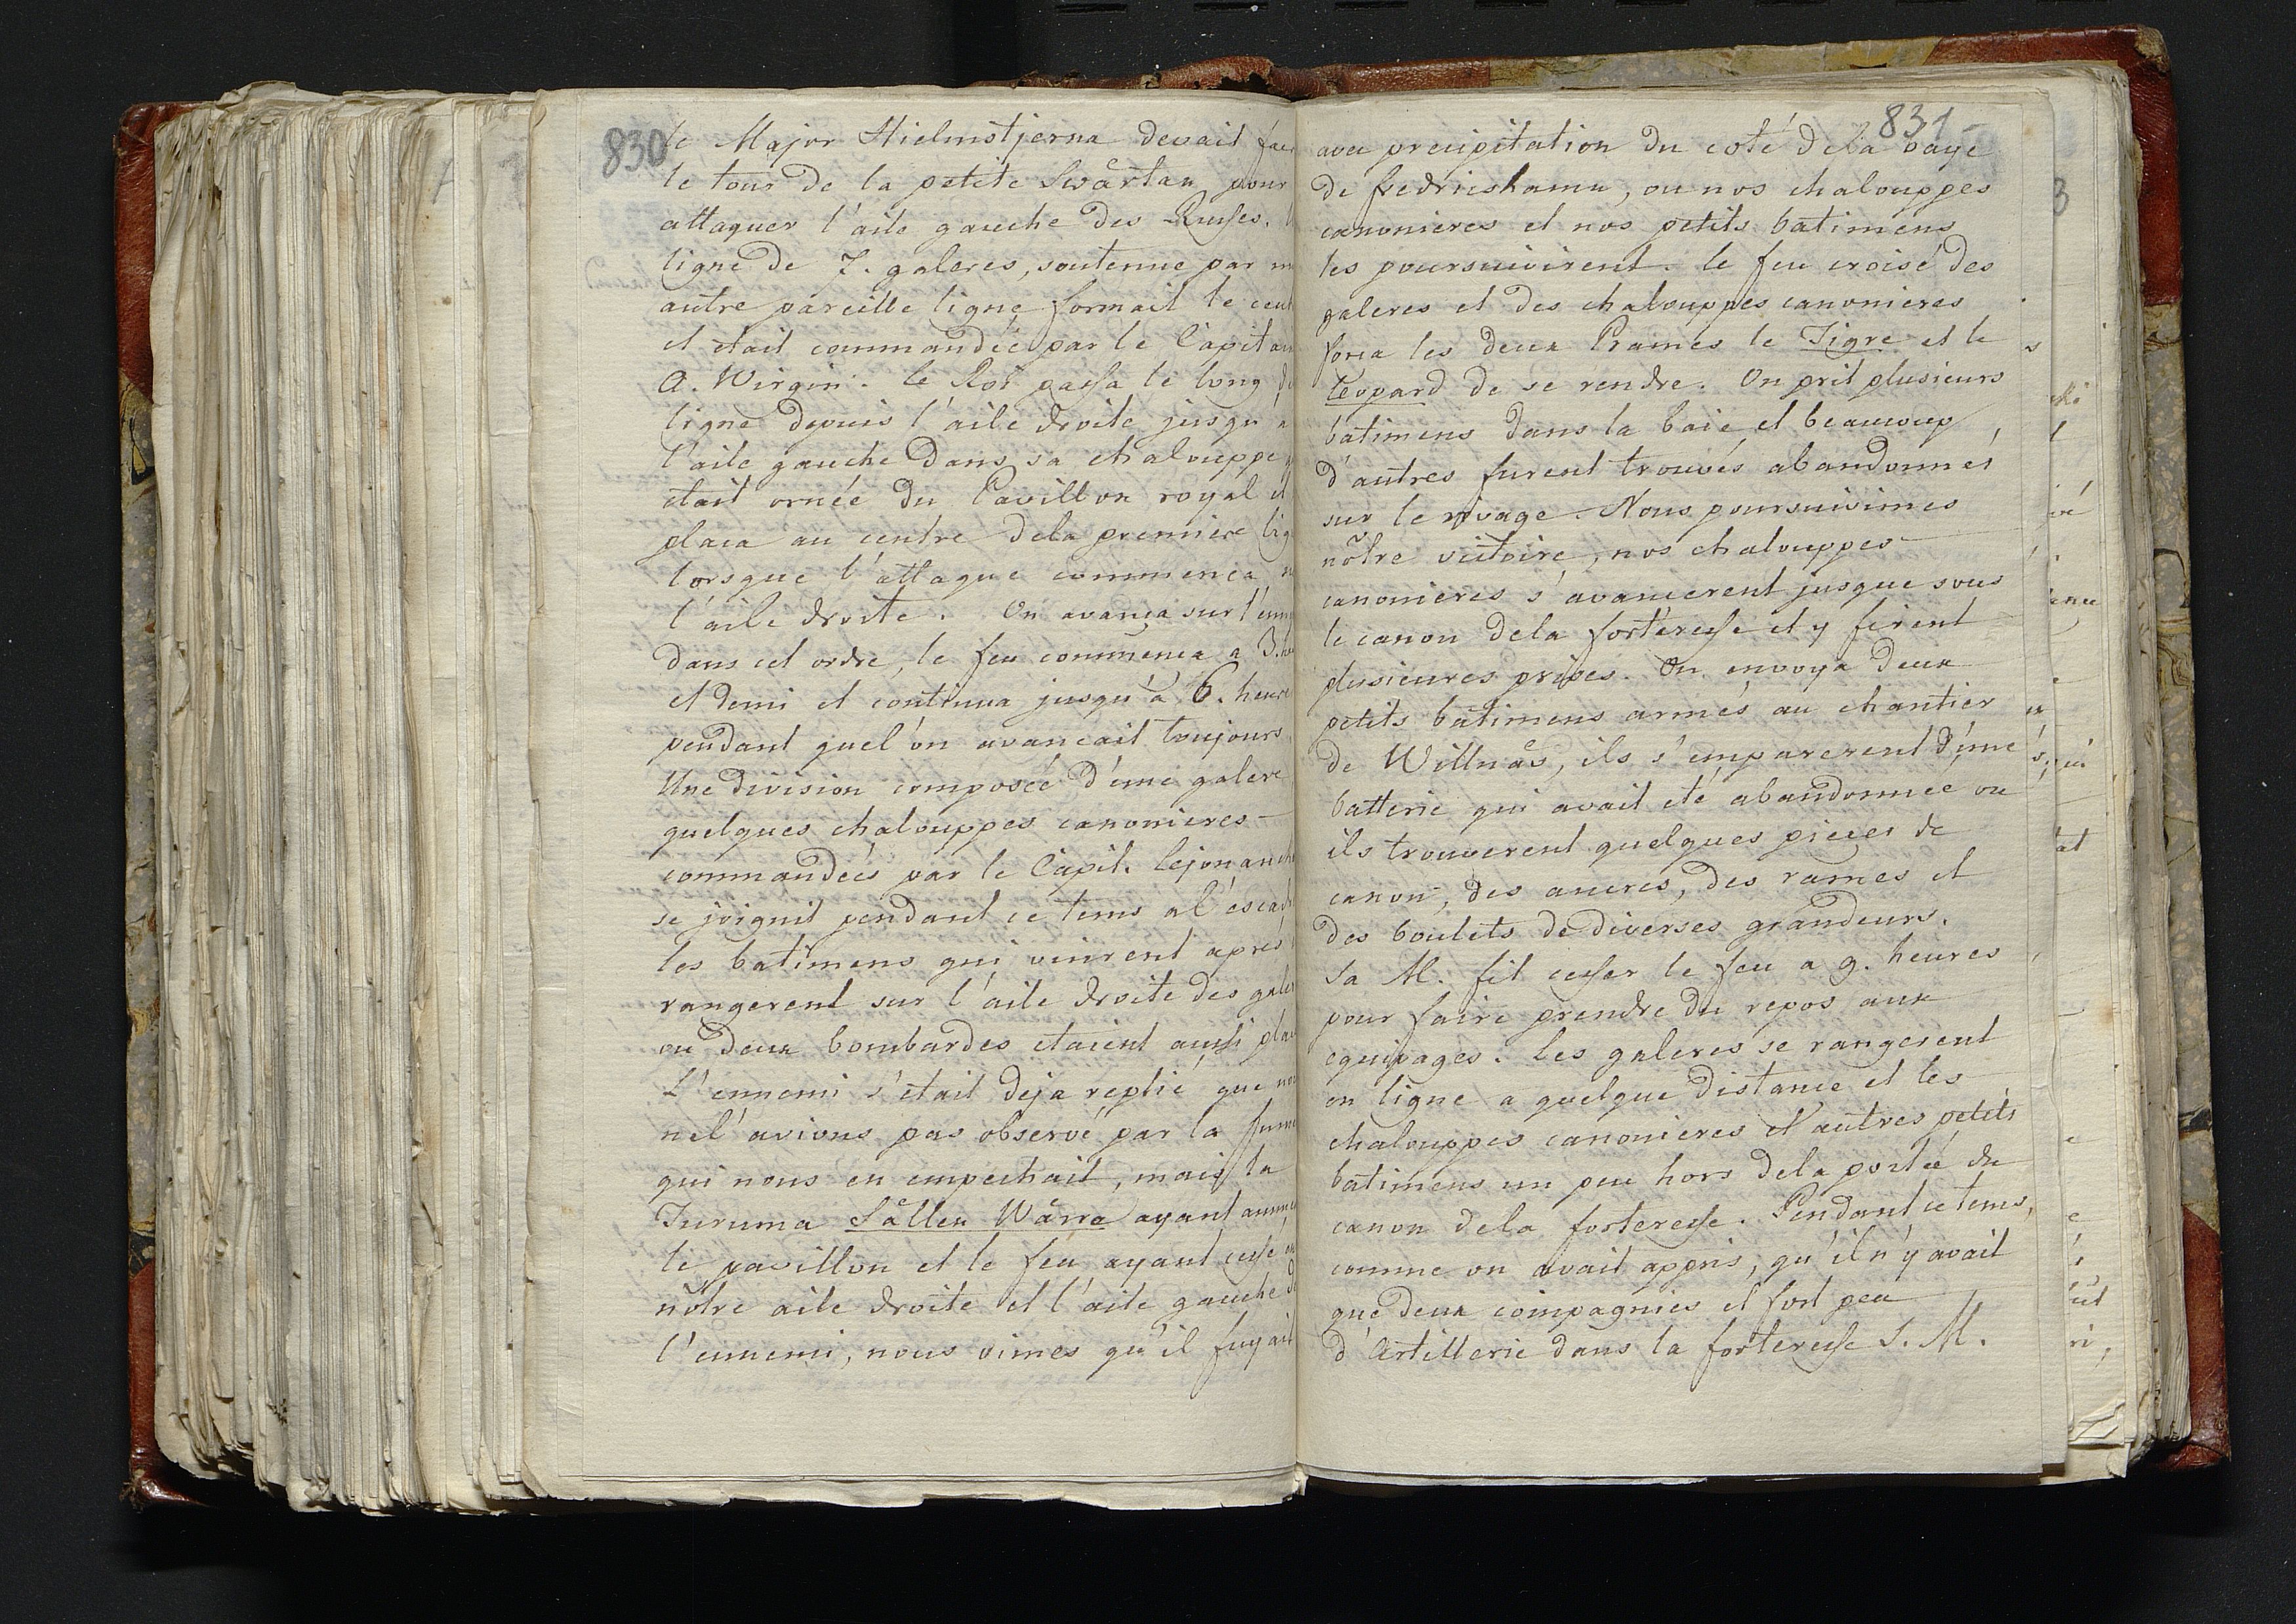 830
le Major Hielmstjerna devait fai
le tour de la petite Swartan pour
attaquer l'aile gauche des Russes.
ligne de 7. galeres, soutenue par un
autre pareille ligne formait le cent
et etait commandée par le Capitan
O. Wirgin. le Roi passa le long d
ligne depuis l'aile droite jusqu'a
l'aile gauche dans sa chalouppe q
etait ornée du Pavillon royal et
placa au centre dela premiere lig
lorsque l'attaque commenca
l'aile droite. On avança sur l'enn
dans cet ordre, le feu commenca a 3. h
et demi et continua jusqu'à 6. heure
pendant quel'on avancait toujours
Une division composée d'une galere
quelques chalouppes canonieres
commandées par le Capit. Lejonanck
se joignit pendant ce tems al'escad
les batimens qui vinrent après
rangerent sur l'aile droite des gale
ou deux bombardes etaient aussi pla
L'ennemi s'etait deja replié que no
nel'avions pas observé par la fume
qui nous en empechait, mais la
Turuma Sällan Wärre ayant amm
le pavillon et le feu ayant cessé
nôtre aile droite et l'aile gauche d
l'ennemi, nous vimes qu'il fuyait
831
avec precipitation du coté dela baye
de fredrieshamn, ou nos chalouppes
canonieres et nos petits batimens
les poursuivirent. le feu croisé des
galeres et des chalouppes canonieres
forca les deux Prames le Tigre et le
Leopard de se rendre. On prit plusieurs
batimens dans la baie et beaucoup
d'autres furent trouvés abandonnés
sur le rivage. Nous poursuivimes
nôtre victoire, nos chalouppes
canonieres s'avancerent jusque sous
le canon dela forteresse et y firent
plusieures prises. On envoya deux
petits bâtimens armés au chantier
de Willnäs, ils s'emparerent d'une
batterie qui avait eté abandonnée ou
ils trouverent quelques pieces de
canon, des ancres, des rames et
des boulets de diverses grandeurs.
Sa M. fit cesser le feu a 9. heures
pour faire prendre du repos aux
equipages. Les galeres se rangerent
en ligne a quelque distance et les
chalouppes canonieres et autres petits
batimens un peu hors dela portée du
canon dela forteresse. Pendant ce tems,
comme on avait appris, qu'il n'y avait
que deux compagnies et fort peu
d'Artillerie dans la forteresse S. M.